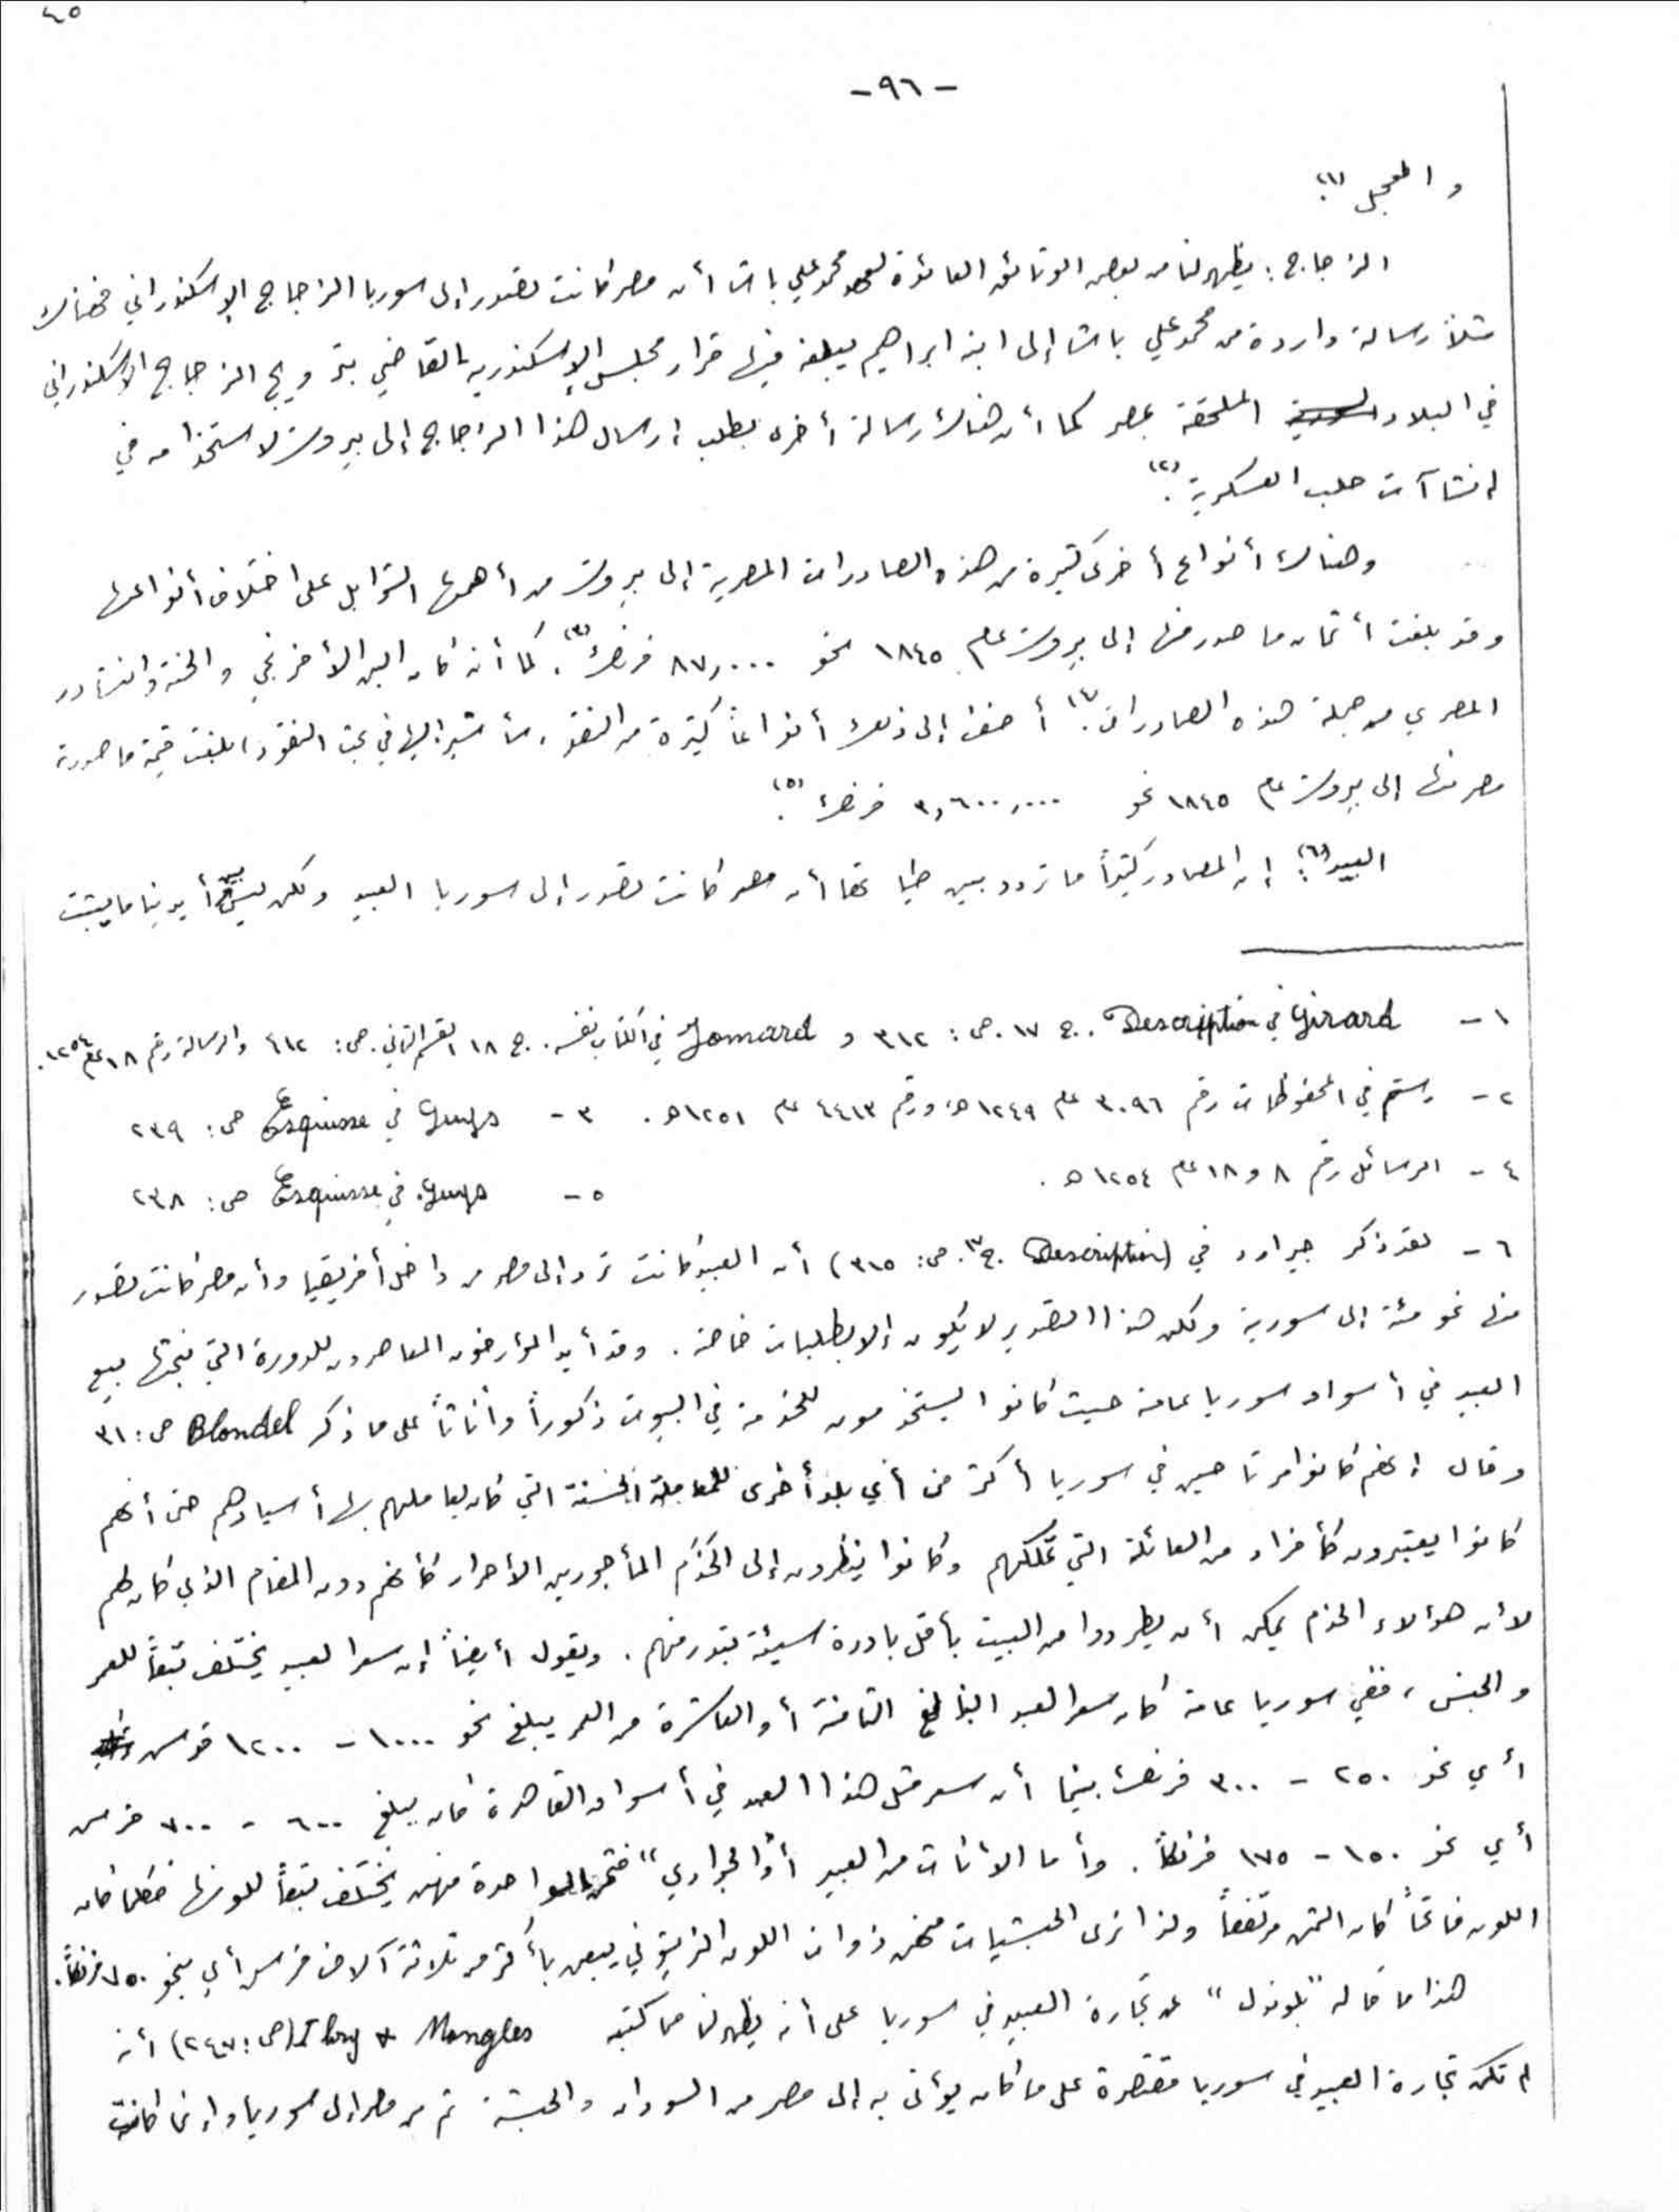 ٤٥
-٩٦-
و المعجل (١).
الزجاج : يظهر لنا من بعض الوثائق العائدة لعهد محمد علي باشا أن مصر كانت تصدر إلى سوريا الزجاج الإسكندراني فهناك
مثلاً رسالة واردة من محمد علي باشا إلى ابنه ابراهيم يبلغه فيها قرار مجلس الإسكندرية القاضي بترويج الزجاج الاسكندراني
في البلاد الملحقة بمصر كما أن هناك رسالة أخرى بطلب ارسال هذا الزجاج إلى بيروت لاستخدامه في
انشاآت حلب العسكرية (٢).
وهناك أنواع أخرى كثيرة من هذه الصادرات المصرية إلى بيروت من أهمها التوابل على اختلاف أنواعها
وقد بلغت أثمان ما صدر منها إلى بيروت عام ١٨٤٥ نحو ٨٧,٠٠٠ فرنك (٣). كما أنه كان البن الأفرنجي والحنة والنشادر
المصري من جملة هذه الصادرات (٤). أضف إلى ذلك أنواعاً كثيرة من النقود سأشير إليها في بحث النقود بلغت قيمة ما صدرته
مصر منها إلى بيروت عام ١٨٤٥ نحو ٣,٦٠٠,٠٠٠ فرنك (٥).
العبيد (٦): إن المصادر كثيراً ما تردد بين طياتها أن مصر كانت تصدر إلى سوريا العبيد ولكن ليس بين أيدينا ما يثبت
١ - Girard في Description . ج ١٧ . ص : ٣١٢ و Jomard في الكتاب نفسه . ج ١٨ القسم الثاني . ص : ٤١٢ والرسالة رقم ١٨ عام ١٢٥٤.
٢ - رستم في المحفوظات رقم ٣٠٩٦ عام ١٢٤٩ هـ ورقم ٤٤١٣ عام ١٢٥١ هـ . ٣ - Guys في Esquisse ص : ٢٣٩
٤ - الرسائل رقم ٨ و ١٨ عام ١٢٥٤ هـ . ٥ - Guys في Esquisse ص : ٢٣٨
٦ - لقد ذكر جيرارد في (Description ج ص : ٣١٥) أن العبيد كانت ترد إلى مصر من داخل أفريقيا وأن مصر كانت تصدر
منها نحو مئة إلى سورية ولكن هذا التصدير لا يكون إلا بطلبات خاصة . وقد أيد المؤرخون المعاصرون للدورة التي نبحثها بيع
العبيد في أسواق سوريا عامة حيث كانوا يستخدمون للخدمة في البيوت ذكوراً وأناثاً على ما ذكر Blondel ص : ٣١
وقال إنهم كانوا مرتاحين في سوريا أكثر من أي بلد أخرى للمعاملة الحسنة التي كان يعاملهم بها أسيادهم حتى أنهم
كانوا يعتبرون كأفراد من العائلة التي تملكهم وكانوا ينظرون إلى الخدم المأجورين الأحرار كأنهم دون المقام الذي كان لهم
لأن هؤلاء الخدم يمكن أن يطردوا من البيت بأقل بادرة سيئة تبدر منهم . ويقول أيضاً إن سعر العبيد يختلف تبعاً للعمر
والجنس ، ففي سوريا عامة كان سعر العبد البالغ الثامنة أو العاشرة من العمر يبلغ نحو ١٠٠٠ - ١٢٠٠ قرش
أي نحو ٢٥٠ - ٣٠٠ فرنك بينما أن سعر مثل هذا العبد في أسواق القاهرة كان يبلغ ٦٠٠ - ٧٠٠ قرش
أي نحو ١٥٠ - ١٧٥ فرنكاً . وأما الأناث من العبيد أو "الجواري" فثمن الواحدة منهن يختلف تبعاً للونها فكلما كان
اللون فاتحاً كان الثمن مرتفعاً ولذا نرى الحبشيات منهن ذوات اللون الزيتوني يبعن بأكثر من ثلاثة آلاف قرش أي بنحو ٧٥٠ فرنكاً.
هذا ما قاله "بلوندل" عن تجارة العبيد في سوريا على أنه يظهر لنا مما كتبه Irby & Mangles (ص : ٢٤٧) أنه
لم تكن تجارة العبيد في سوريا مقتصرة على ما كان يؤتى به إلى مصر من السودان والحبشة ثم من مصر إلى سوريا وإنما كانت